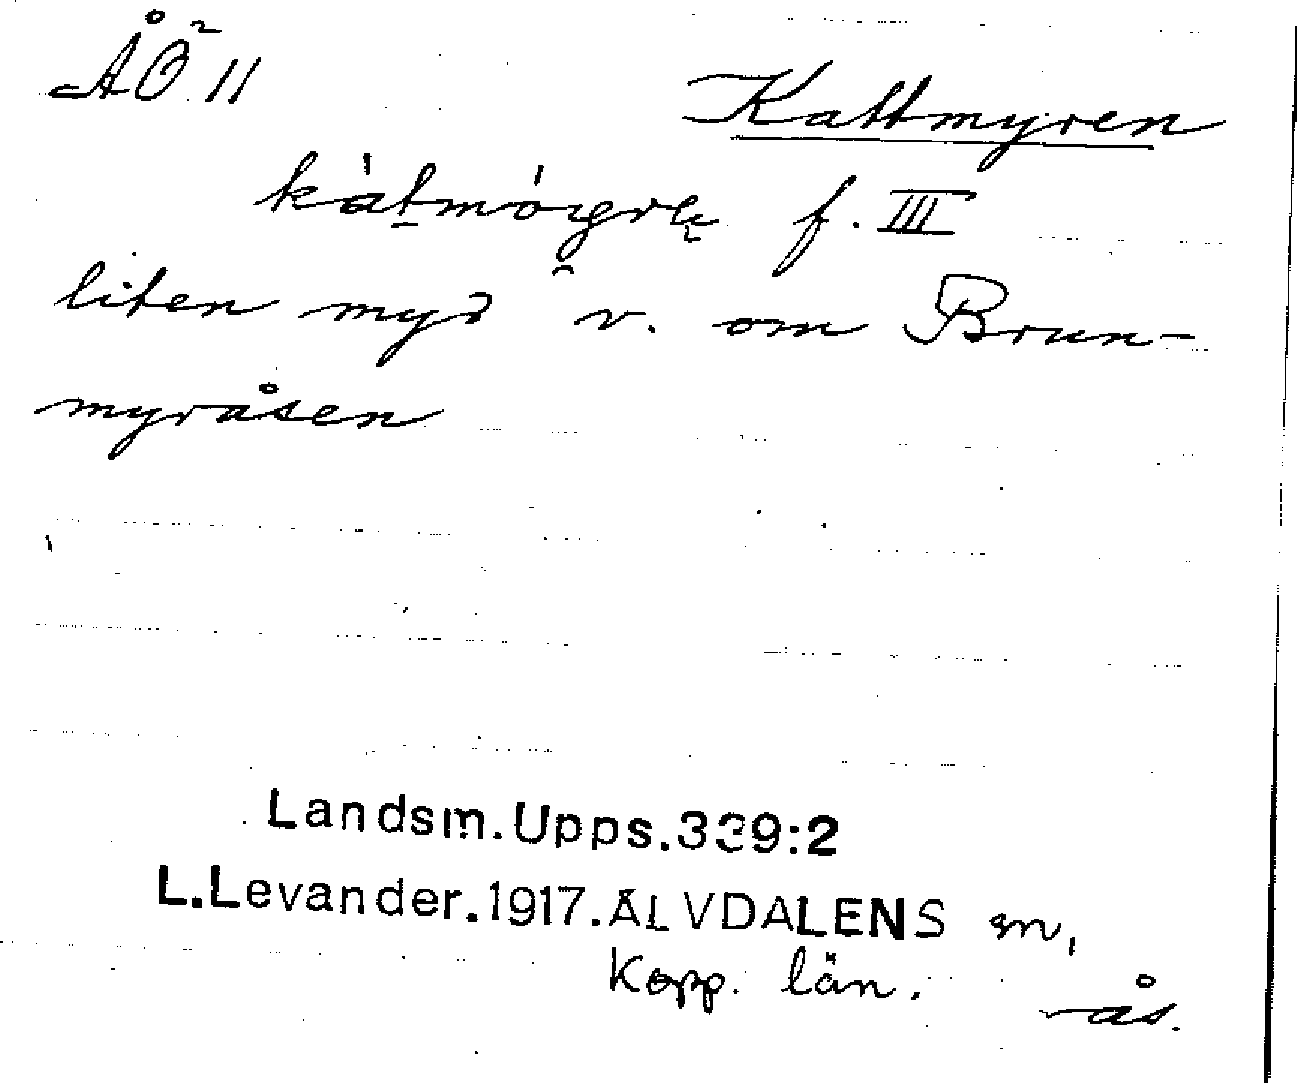 ÅÖ 11
Kattmyren
f. III
liten myr v. om Brun-
myråsen
Landsm.Upps.339:2
L.Levander.1917.ÄLVDALENS sn,
Kopp. län.
ås.